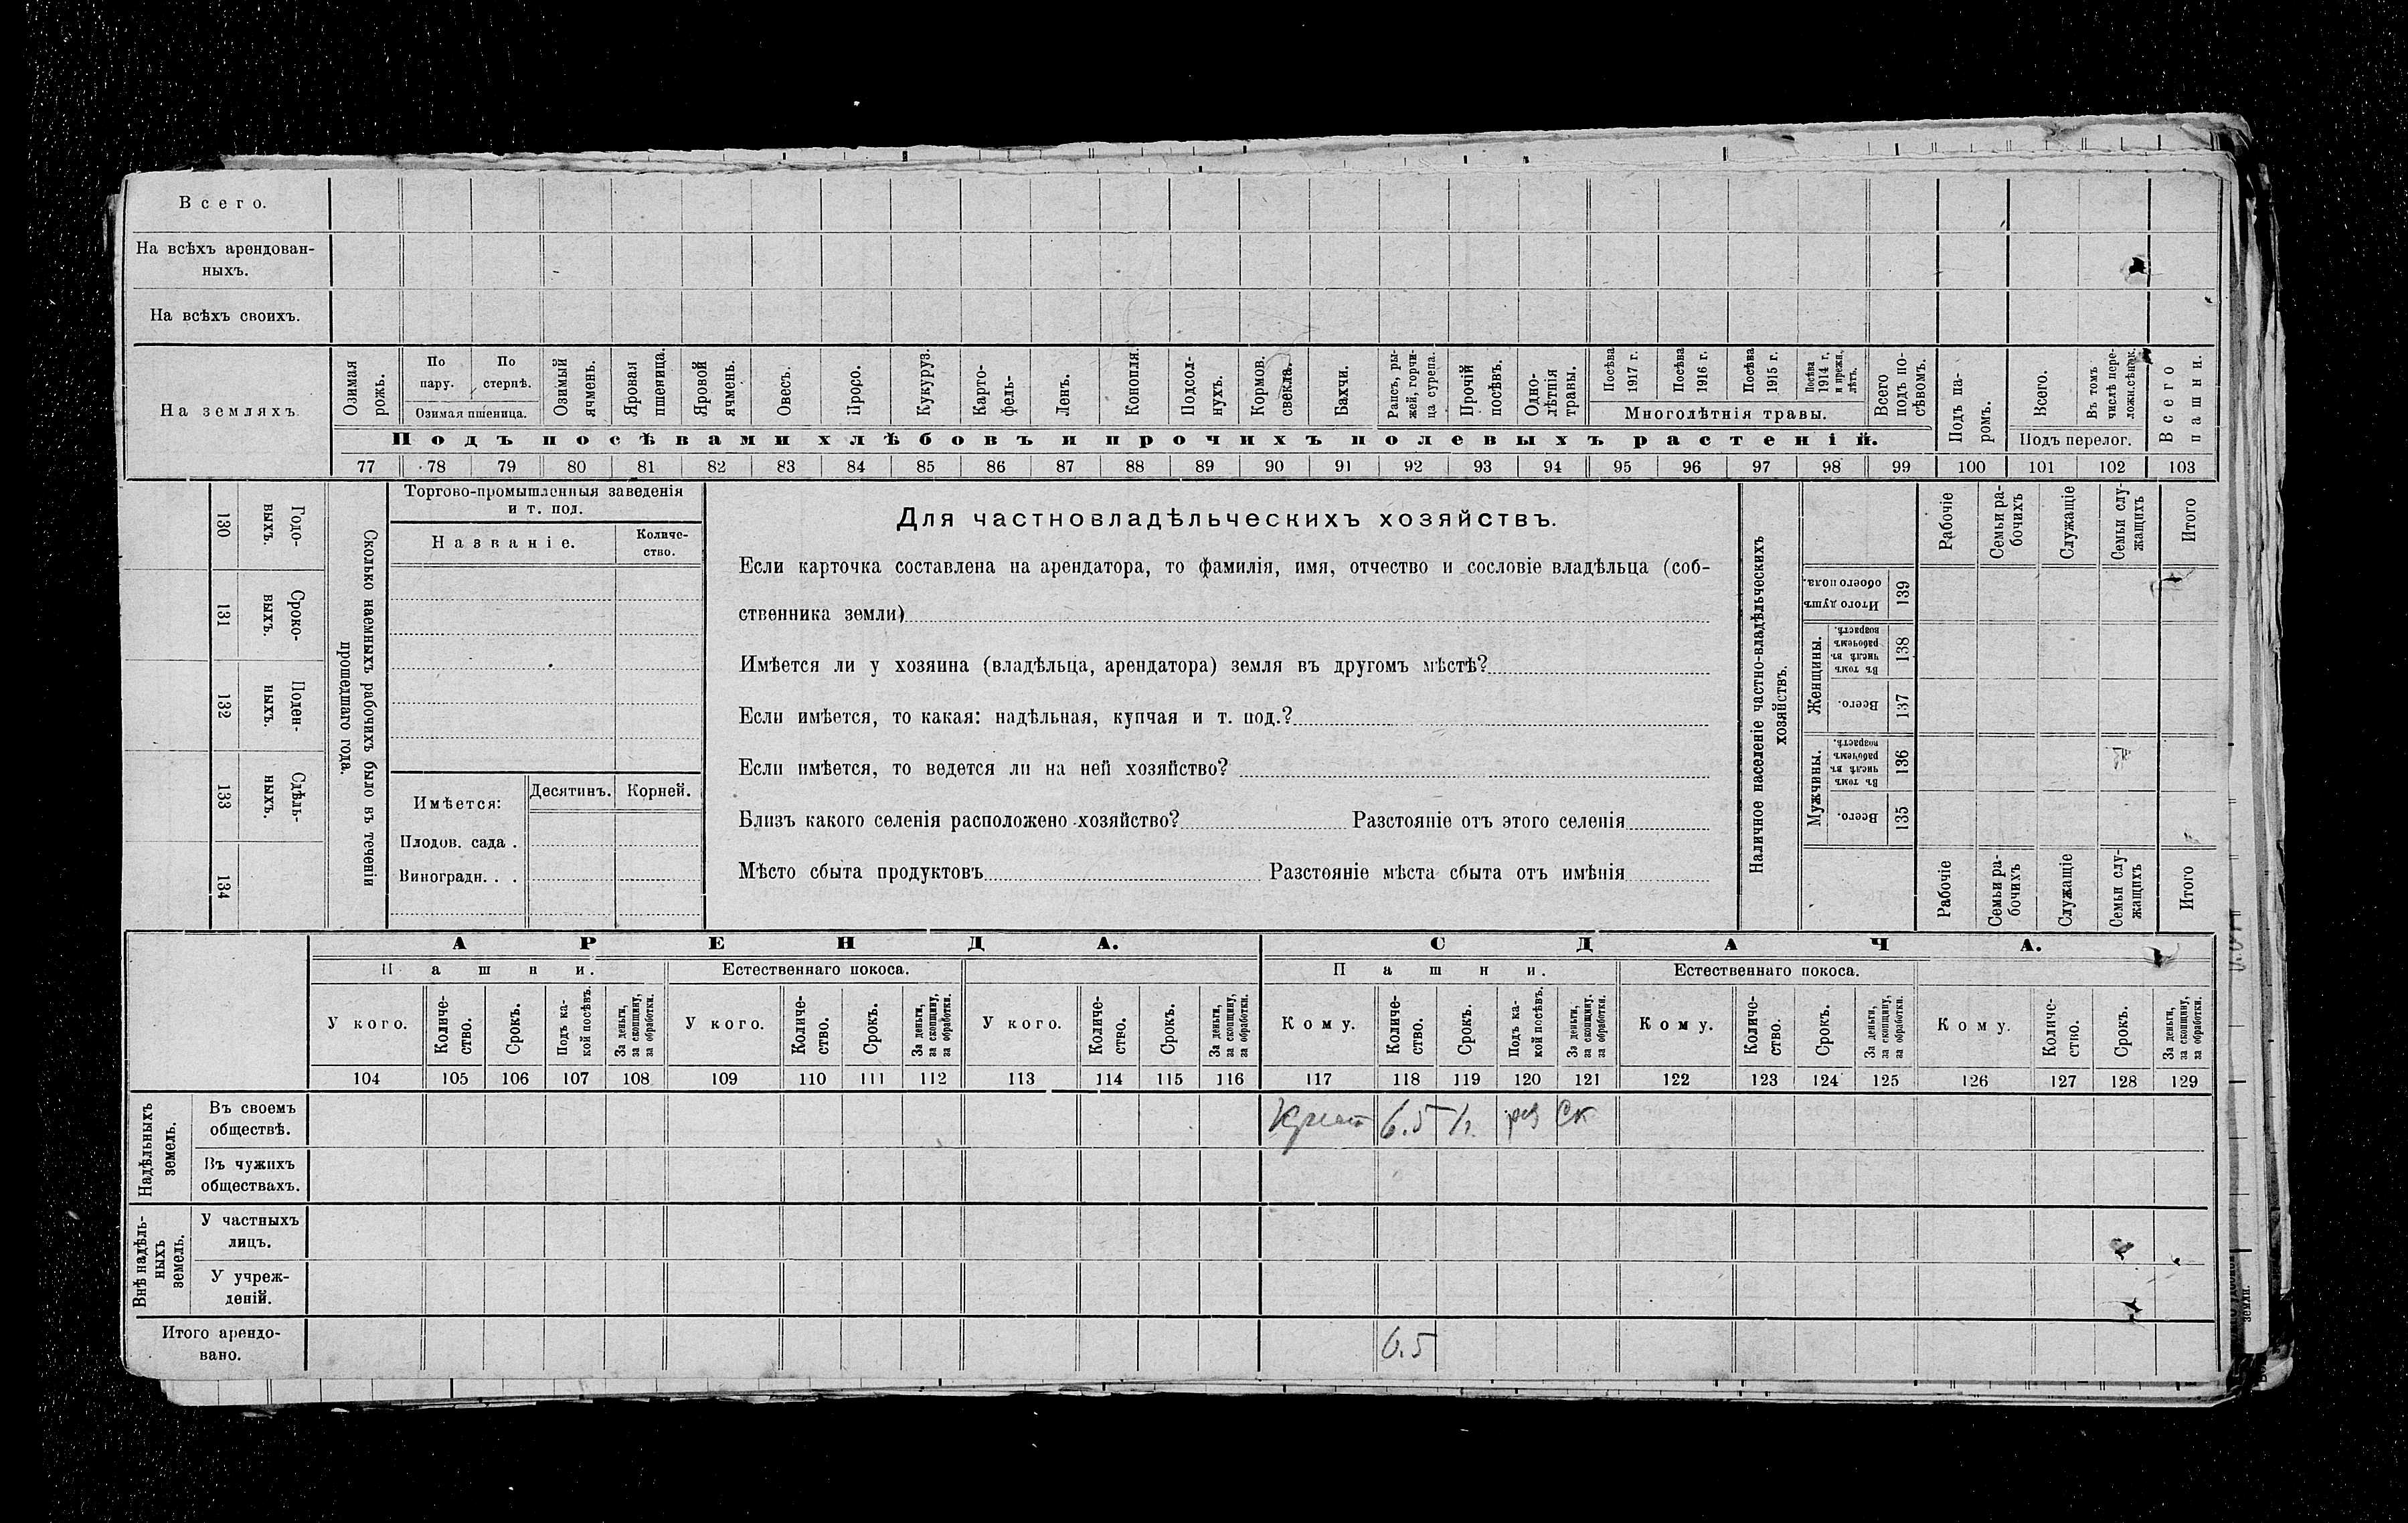 Всего.
На всѣхъ арендован-
ныхъ.
На всѣхъ своихъ.
На земляхъ
Озимая рожь.
По пару.
По стернѣ.
Озимая пшеница.
Озимый ячмень.
Яровая пшеница.
Яровой ячмень.
Овесъ.
Просо.
Кукуруз.
Карто-
фель-
Ленъ.
Конопля.
Подсол-
нухъ.
Кормов. свекла.
Бахчи.
Рапсъ, ры-
жей, горчи-
ца сурепа.
Прочій посѣвъ.
Одно-
лѣтнія
травы.
Посѣва 1917 г.
Посѣва 1916 г.
Посѣва 1915 г.
Посѣва 1914 г. и прежн. лѣтъ.
Многолѣтнія травы.
Всего подъ по-
сѣвомъ.
Подъ па-
ромъ.
Всего.
Въ томъ числѣ пере-
ложн.сѣнок.
Подъ перелог.
Всего пашни.
Подъ посѣвами хлѣбовъ и прочихъ полевыхъ растеній.
77 78 79 80 81 82 83 84 85 86 87 88 89 90 91 92 93 94 95 96 97 98 99 100 101 102 103
130
Годо-
выхъ.
131
Сроко-
выхъ.
132
Поден-
ныхъ.
133
Сдѣль-
ныхъ.
134
Сколько наемныхъ рабочихъ было въ теченіи
прошедшаго года.
Торгово-промышленныя заведенія
и т. под.
Названіе.
Количе-
ство.
Имѣется:
Десятинъ.
Корней.
Плодов. сада .
Виноградн. . .
Для частновладѣльческихъ хозяйствъ.
Если карточка составлена на арендатора, то фамилія, имя, отчество и сословіе владѣльца (соб-
ственника земли)
Имѣется ли у хозяина (владѣльца, арендатора) земля въ другомъ мѣстѣ?
Если имѣется, то какая: надѣльная, купчая и т. под.?
Если имѣется, то ведется ли на ней хозяйство?
Близъ какого селенія расположено хозяйство? Разстояніе отъ этого селенія
Мѣсто сбыта продуктовъ Разстояніе мѣста сбыта отъ имѣнія
Наличное населеніе частно-владѣльческихъ
хозяйствъ.
Рабочіе
Семьи ра-
бочихъ
Служащіе
Семьи слу-
жащихъ
Итого
Итого душъ
обоего пола.
139
Женщины.
Въ томъ
числѣ въ
рабочемъ
возрастѣ.
138
Всего.
137
Мужчины.
Въ томъ
числѣ въ
рабочемъ
возрастѣ.
136
Всего.
135
Рабочіе
Семьи ра-
бочихъ
Служащіе
Семьи слу-
жащихъ
Итого
АРЕНДА.
СДАЧА.
Пашни.
Естественнаго покоса.
Пашни.
Естественнаго покоса.
У кого.
Количе-
ство.
Срокъ.
Подъ ка-
кой посѣвъ.
За деньги,
за скопщину,
за обработки.
У кого.
Количе-
ство.
Срокъ.
За деньги,
за скопщину,
за обработки.
У кого.
Количе-
ство.
Срокъ.
За деньги,
за скопщину,
за обработки.
Кому.
Количе-
ство.
Срокъ.
Подъ ка-
кой посѣвъ.
За деньги,
за скопщину,
за обработки.
Кому.
Количе-
ство.
Срокъ.
За деньги,
за скопщину,
за обработки.
Кому.
Количе-
ство.
Срокъ.
За деньги,
за скопщину,
за обработки.
104 105 106 107 108 109 110 111 112 113 114 115 116 117 118 119 120 121 122 123 124 125 126 127 128 129
Надѣльныхъ
земель.
Въ своемъ
обществѣ.
6.5 Ск
Въ чужихъ
обществахъ.
Внѣ надѣль-
ныхъ
земель.
У частныхъ
лицъ.
У учреж-
деній.
Итого арендо-
вано.
6.5
земли.